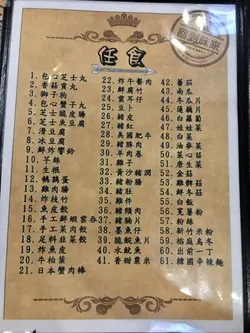 任食
1. 包心芝士丸
2. 香菇貢丸
3. 獅子狗
4. 包心蟹子丸
5. 芝士脆皮腸
6. 芝士魚豆腐
7. 滑豆腐
8. 冰豆腐
9. 鮮炸響鈴
10. 芋絲
11. 生根
12. 鵪鶉蛋
13. 雞肉腸
14. 炸枝竹
15. 魚皮餃
16. 手工鮮蝦雲吞
17. 手工菜肉餃
18. 足料韮菜餃
19. 炸魚皮
20. 牛柏葉
21. 日本蟹肉棒
22. 炸午餐肉
23. 鮮腐竹
24. 雲耳仔
25. 豆卜
26. 豬皮
27. 豬紅
28. 美國肥牛
29. 豬豚肉
30. 羊肉卷
31. 雞子
32. 黃沙豬潤
33. 豬腰
34. 豬肚
35. 雞件
36. 豬頸肉
37. 豬腩片
38. 墨魚仔
39. 脆鯇魚片
40. 水魷魚
41. 香甜粟米
42. 蕃茄
43. 南瓜片
44. 冬瓜片
45. 蓮藕片
46. 白蘿蔔
47. 娃娃菜
48. 白菜
49. 油麥菜
50. 菜心苗
51. 唐生菜
52. 金菇
53. 雞髀菇
54. 鮮冬菇
55. 白飯
56. 芝薯粉
57. 粉絲
58. 新竹米粉
59. 稻庭烏冬
60. 出前一丁
61. 韓國辛辣麵